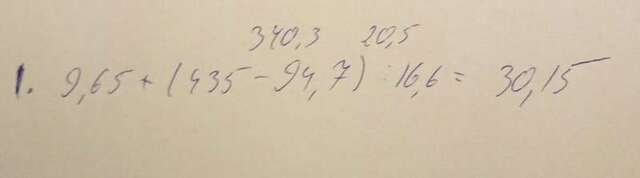 340,3 20,5
1. 9,65 + (435 - 94,7) : 16,6 = 30,15